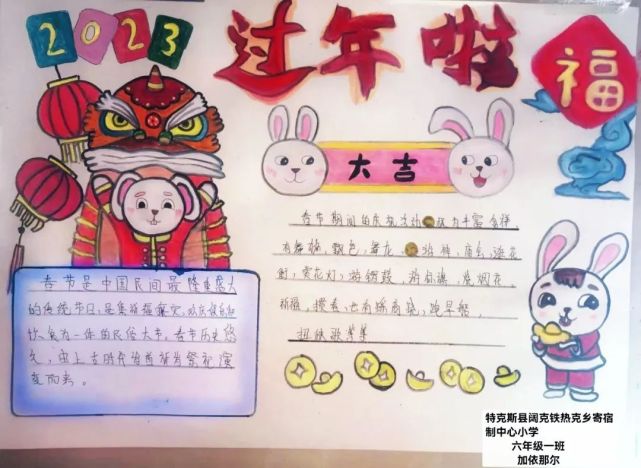 2023
过年啦
福
大吉
春节期间的庆祝活动极为丰富多样,
有舞狮、飘色、舞龙、游神、庙会、逛花
街、赏花灯、游锣鼓、游标旗、烧烟花、
祈福、掼春、也有踩高跷、跑旱船、
扭秧歌等等
春节是中国民间最隆重盛大
的传统节日,是集祈福攘灾、欢庆娱乐和
饮食为一体的民俗大节。春节历史悠
久,由上古时代岁首祈岁祭祀演
变而来。
特克斯县阔克铁热克乡寄宿
制中心小学
六年级一班
加依那尔